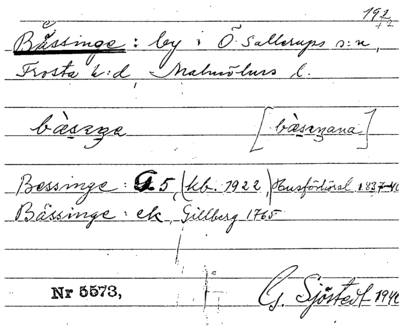 192
Bässinge: by i Ö. Sallerups s:n,
Frosta h:d, Malmöhus l.
bàseŋe [bàseŋana]
Bessinge: G 5, (kb. 1922,) Husförhörsl. 1837-40
Bässinge: ek, Gillberg 1765
Nr 5573,
G. Sjöstedt 1940